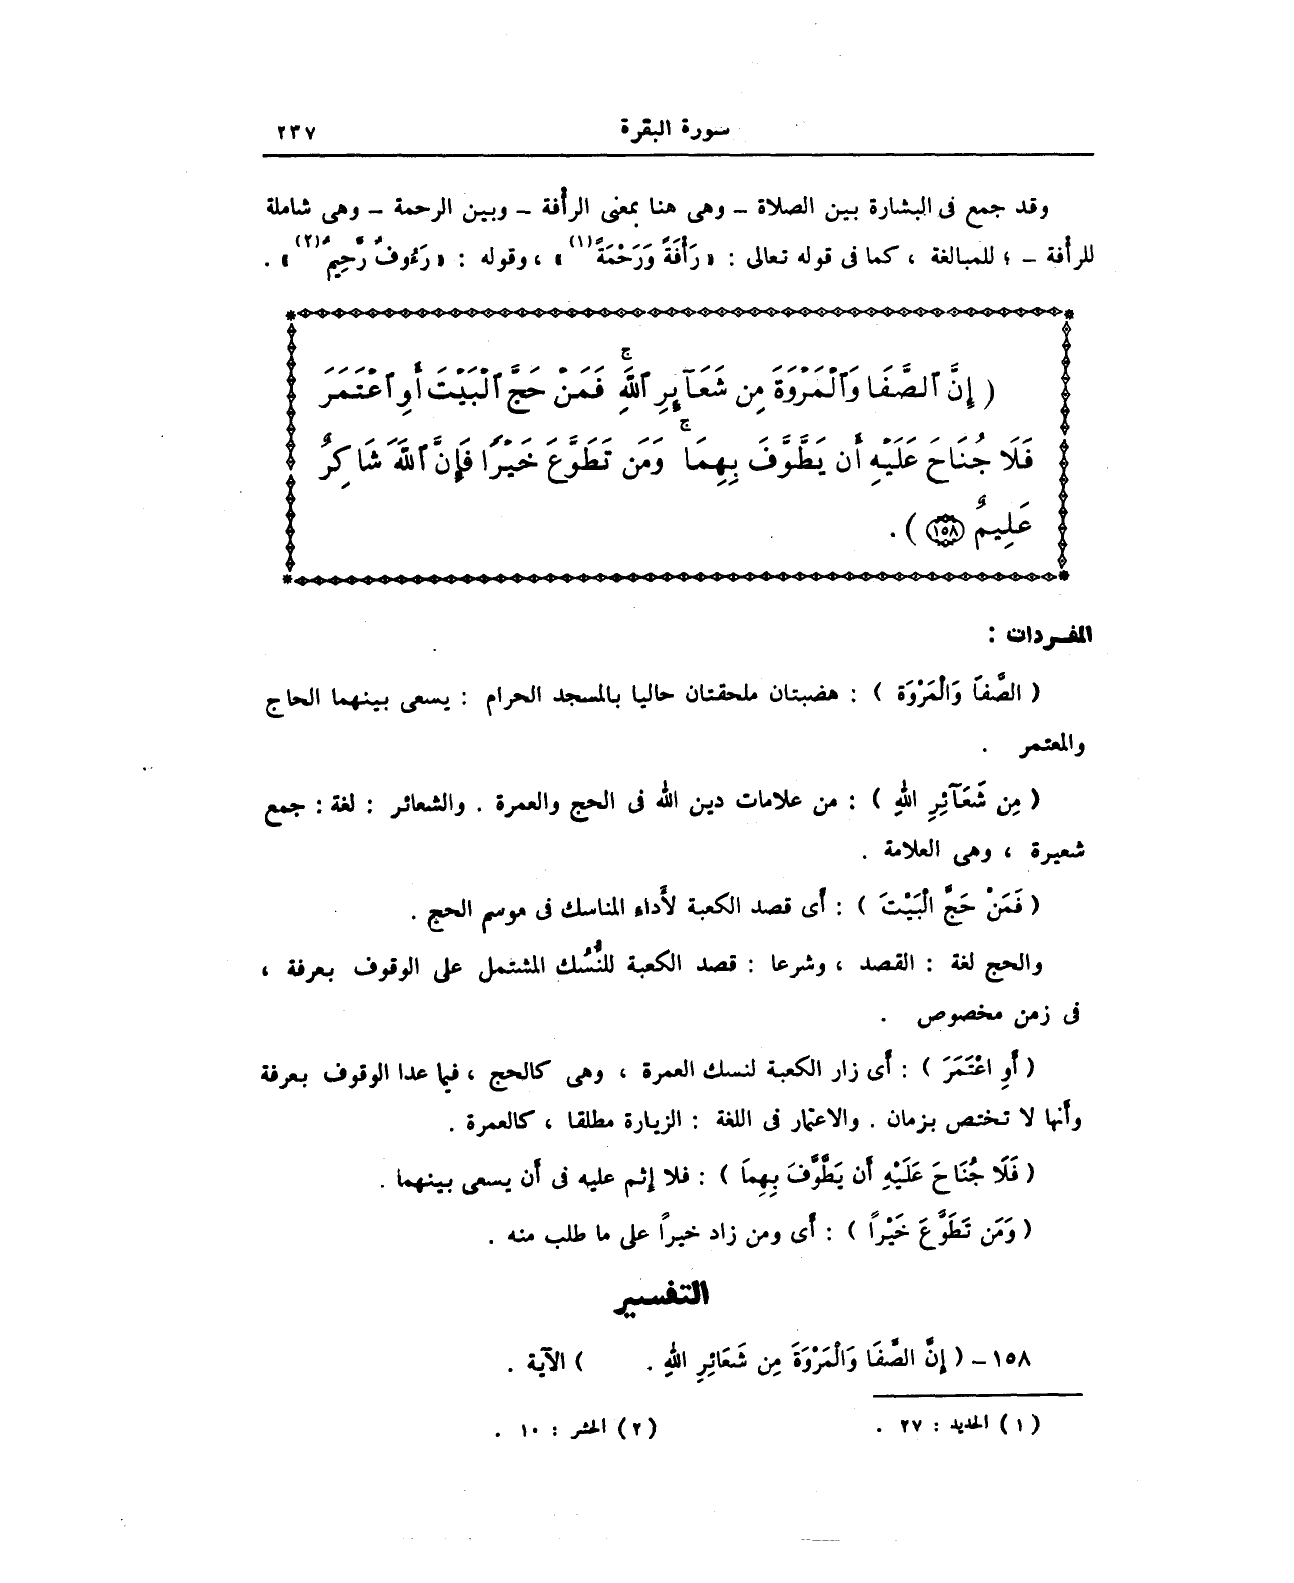 سورة البقرة ٢٣٧
وقد جمع فى البشارة بين الصلاة – وهى هنا بمعنى الرأفة – وبين الرحمة – وهى شاملة
للرأفة – ؛ للمبالغة ، كما فى قوله تعالى : « رَأْفَةً وَرَحْمَةً(١) » ، وقوله : « رَءُوفٌ رَّحِيمٌ(٢) » .
( إِنَّ ٱلصَّفَا وَٱلْمَرْوَةَ مِن شَعَآئِرِ ٱللَّهِ ۖ فَمَنْ حَجَّ ٱلْبَيْتَ أَوِ ٱعْتَمَرَ
فَلَا جُنَاحَ عَلَيْهِ أَن يَطَّوَّفَ بِهِمَا ۚ وَمَن تَطَوَّعَ خَيْرًا فَإِنَّ ٱللَّهَ شَاكِرٌ
عَلِيمٌ ١٥٨ ) .
المفردات :
( الصَّفَا وَالْمَرْوَة ) : هضبتان ملحقتان حاليا بالمسجد الحرام : يسعى بينهما الحاج
والمعتمر .
( مِن شَعَآئِرِ اللهِ ) : من علامات دين الله فى الحج والعمرة . والشعائر : لغة : جمع
شعيرة ، وهى العلامة .
( فَمَنْ حَجَّ الْبَيْتَ ) : أى قصد الكعبة لأَداء المناسك فى موسم الحج .
والحج لغة : القصد ، وشرعا : قصد الكعبة للنُّسُك المشتمل على الوقوف بعرفة ،
فى زمن مخصوص .
( أَوِ اعْتَمَرَ ) : أى زار الكعبة لنسك العمرة ، وهى كالحج ، فيما عدا الوقوف بعرفة
وأنها لا تختص بزمان . والاعتمار فى اللغة : الزيارة مطلقا ، كالعمرة .
( فَلَا جُنَاحَ عَلَيْهِ أَن يَطَّوَّفَ بِهِمَا ) : فلا إثم عليه فى أن يسعى بينهما .
( وَمَن تَطَوَّعَ خَيْراً ) : أى ومن زاد خيراً على ما طلب منه .
التفسير
١٥٨ – ( إِنَّ الصَّفَا وَالْمَرْوَةَ مِن شَعَائِرِ اللهِ . ) الآية .
(١) الحديد : ٢٧ . (٢) الحشر : ١٠ .